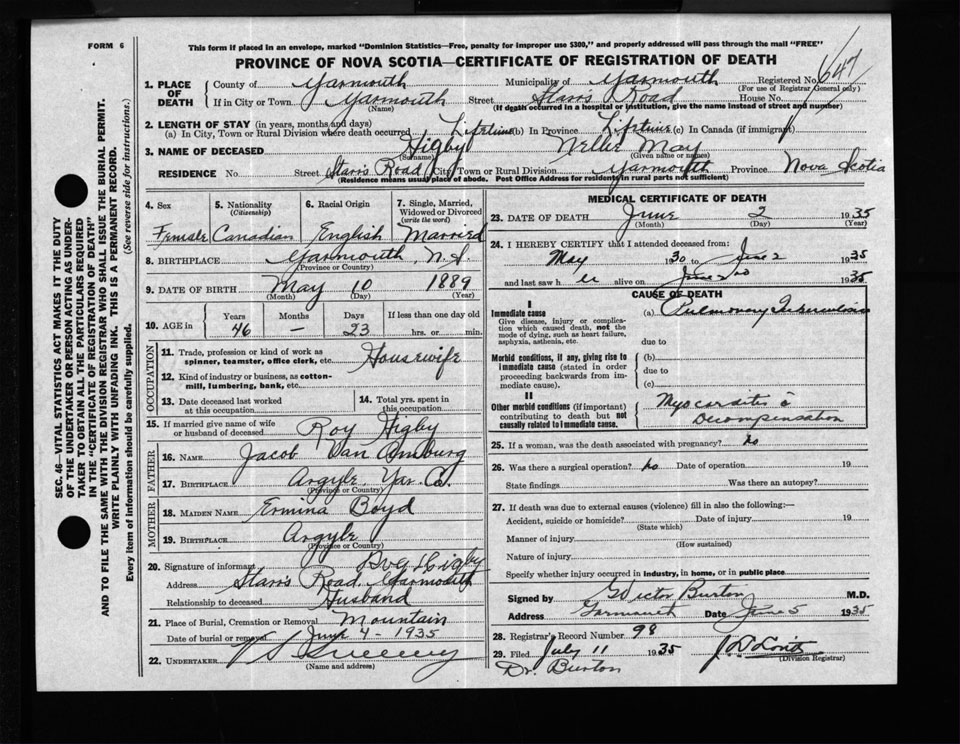 FORM 6
This form if placed in an envelope, marked "Dominion Statistics—Free, penalty for improper use $300," and properly addressed will pass through the mail "FREE"
PROVINCE OF NOVA SCOTIA—CERTIFICATE OF REGISTRATION OF DEATH
1. PLACE OF DEATH County of Yarmouth Municipality of Yarmouth Registered No. 647
(For use of Registrar General only)
If in City or Town Yarmouth Street Starrs Road House No.
(Name) (If death occurred in a hospital or institution, give the name instead of street and number)
2. LENGTH OF STAY (in years, months and days)
(a) In City, Town or Rural Division where death occurred Lifetime (b) In Province Lifetime (c) In Canada (if immigrant)
3. NAME OF DECEASED Higby Nellie May
(Surname) (Given name or names)
RESIDENCE No. Street Starrs Road City Town or Rural Division Yarmouth Province Nova Scotia
(Residence means usual place of abode. Post Office Address for residents in rural parts not sufficient)
4. Sex 5. Nationality (Citizenship) 6. Racial Origin 7. Single, Married, Widowed or Divorced (write the word)
Female Canadian English Married
8. BIRTHPLACE Yarmouth, N.S.
(Province or Country)
9. DATE OF BIRTH May 10 1889
(Month) (Day) (Year)
10. AGE in Years Months Days If less than one day old
46 — 23 hrs. or min.
OCCUPATION
11. Trade, profession or kind of work as spinner, teamster, office clerk, etc. Housewife
12. Kind of industry or business, as cotton-mill, lumbering, bank, etc.
13. Date deceased last worked at this occupation
14. Total yrs. spent in this occupation
15. If married give name of wife or husband of deceased Roy Higby
FATHER
16. NAME Jacob Van Amburg
17. BIRTHPLACE Argyle Yar. Co.
(Province or Country)
MOTHER
18. MAIDEN NAME Ermina Boyd
19. BIRTHPLACE Argyle
(Province or Country)
20. Signature of informant Higby
Address Starrs Road, Yarmouth
Relationship to deceased Husband
21. Place of Burial, Cremation or Removal Mountain
Date of burial or removal June 4 - 1935
22. UNDERTAKER V S Sweeny
(Name and address)
MEDICAL CERTIFICATE OF DEATH
23. DATE OF DEATH June 2 1935
(Month) (Day) (Year)
24. I HEREBY CERTIFY that I attended deceased from:
May 1930 to June 2 1935
and last saw h er alive on June 2nd 1935
CAUSE OF DEATH
I
Immediate cause (a) Pulmonary Tuberculosis
Give disease, injury or complication which caused death, not the mode of dying, such as heart failure, asphyxia, asthenia, etc.
due to
Morbid conditions, if any, giving rise to immediate cause (stated in order proceeding backwards from immediate cause).
(b)
due to
(c)
II
Other morbid conditions (if important) contributing to death but not causally related to immediate cause.
Myocarditis c̄
Decompensation
25. If a woman, was the death associated with pregnancy? no
26. Was there a surgical operation? no Date of operation 19
State findings Was there an autopsy?
27. If death was due to external causes (violence) fill in also the following:—
Accident, suicide or homicide? Date of injury 19
(State which)
Manner of injury
(How sustained)
Nature of injury
Specify whether injury occurred in industry, in home, or in public place
Signed by Victor Burton M.D.
Address Yarmouth Date June 5 1935
28. Registrar's Record Number 98
29. Filed July 11 1935
(Division Registrar)
Dr. Burton
SEC. 46—VITAL STATISTICS ACT MAKES IT THE DUTY
OF THE UNDERTAKER OR PERSON ACTING AS UNDER-
TAKER TO OBTAIN ALL THE PARTICULARS REQUIRED
IN THE "CERTIFICATE OF REGISTRATION OF DEATH"
AND TO FILE THE SAME WITH THE DIVISION REGISTRAR WHO SHALL ISSUE THE BURIAL PERMIT.
WRITE PLAINLY WITH UNFADING INK. THIS IS A PERMANENT RECORD.
Every item of information should be carefully supplied. (See reverse side for instructions.)